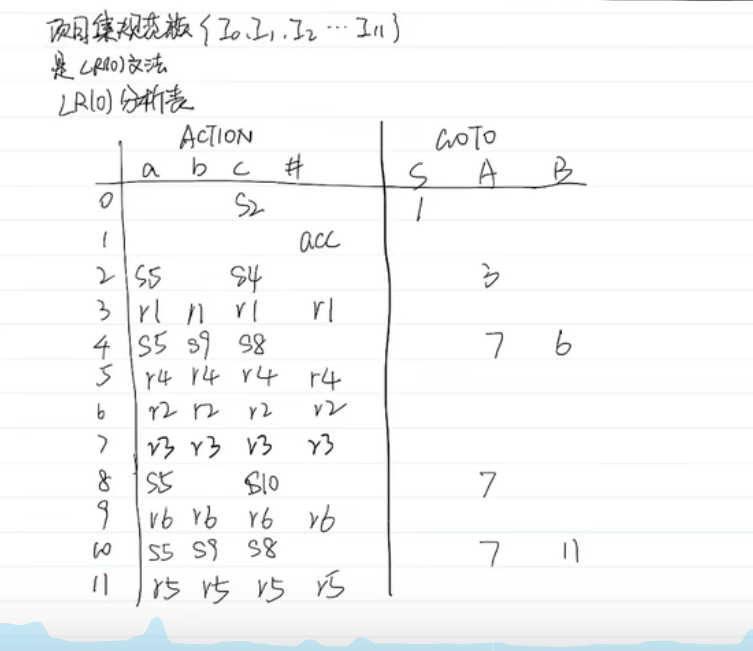 项目集规范族{I0、I1、I2…I11}
是LR(0)文法
LR(0)分析表
ACTION GOTO
a b c # S A B
0 S2 1
1 acc
2 S5 S4 3
3 r1 r1 r1 r1
4 S5 S9 S8 7 6
5 r4 r4 r4 r4
6 r2 r2 r2 r2
7 r3 r3 r3 r3
8 S5 S10 7
9 r6 r6 r6 r6
10 S5 S9 S8 7 11
11 r5 r5 r5 r5